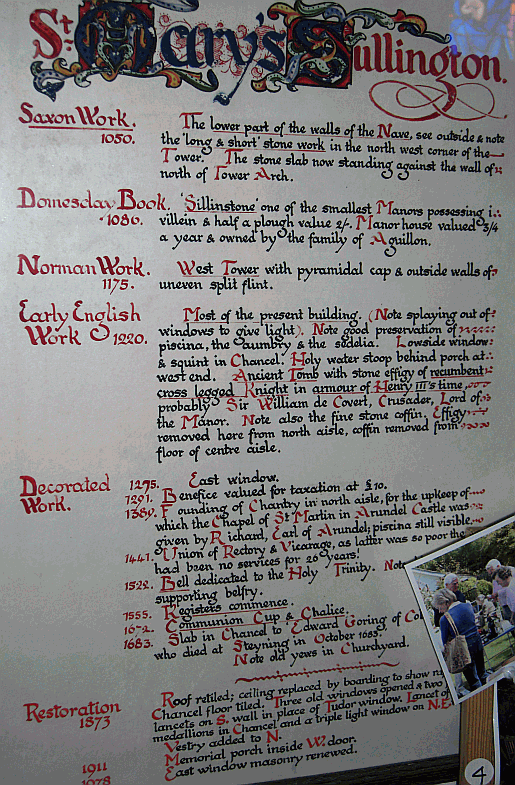 St. Mary's Sullington.
Saxon Work.
1050.
The lower part of the walls of the Nave, see outside & note
the 'long & short' stone work in the north west corner of the
Tower. The stone slab now standing against the wall of
north of Tower Arch.
Domesday Book.
1086.
'Sillinstone' one of the smallest Manors possessing 1
villein & half a plough value 2/-. Manor house valued 3/4
a year & owned by the family of Aguillon.
Norman Work.
1175.
West Tower with pyramidal cap & outside walls of
uneven split flint.
Early English
Work 1220.
Most of the present building. (Note splaying out of
windows to give light). Note good preservation of
piscina, the aumbry & the sedelia. Lowside window
& squint in Chancel. Holy water stoop behind porch at
west end. Ancient Tomb with stone effigy of recumbent
cross legged Knight in armour of Henry III's time,
probably Sir William de Covert, Crusader, Lord of
the Manor. Note also the fine stone coffin. Effigy
removed here from north aisle, coffin removed from
floor of centre aisle.
Decorated
Work.
1275. East window.
1291. Benefice valued for taxation at §10.
1380. Founding of Chantry in north aisle, for the upkeep of
which the Chapel of St Martin in Arundel Castle was
given by Richard, Earl of Arundel; piscina still visible.
1441. Union of Rectory & Vicarage, as latter was so poor the
had been no services for 26 years!
1522. Bell dedicated to the Holy Trinity.
supporting belfry.
1555. Registers commence.
1672. Communion Cup & Chalice.
1683. Slab in Chancel to Edward Goring of
who died at Steyning in October 1683.
Note old yews in Churchyard.
Restoration
1873
Roof retiled; ceiling replaced by boarding to show
Chancel floor tiled. Three old windows opened & two
lancets on S. wall in place of Tudor window. Lancet of
medallions in Chancel and a triple light window on N.E.
Vestry added to N.
1911 Memorial porch inside W. door.
1978 East window masonry renewed.
4